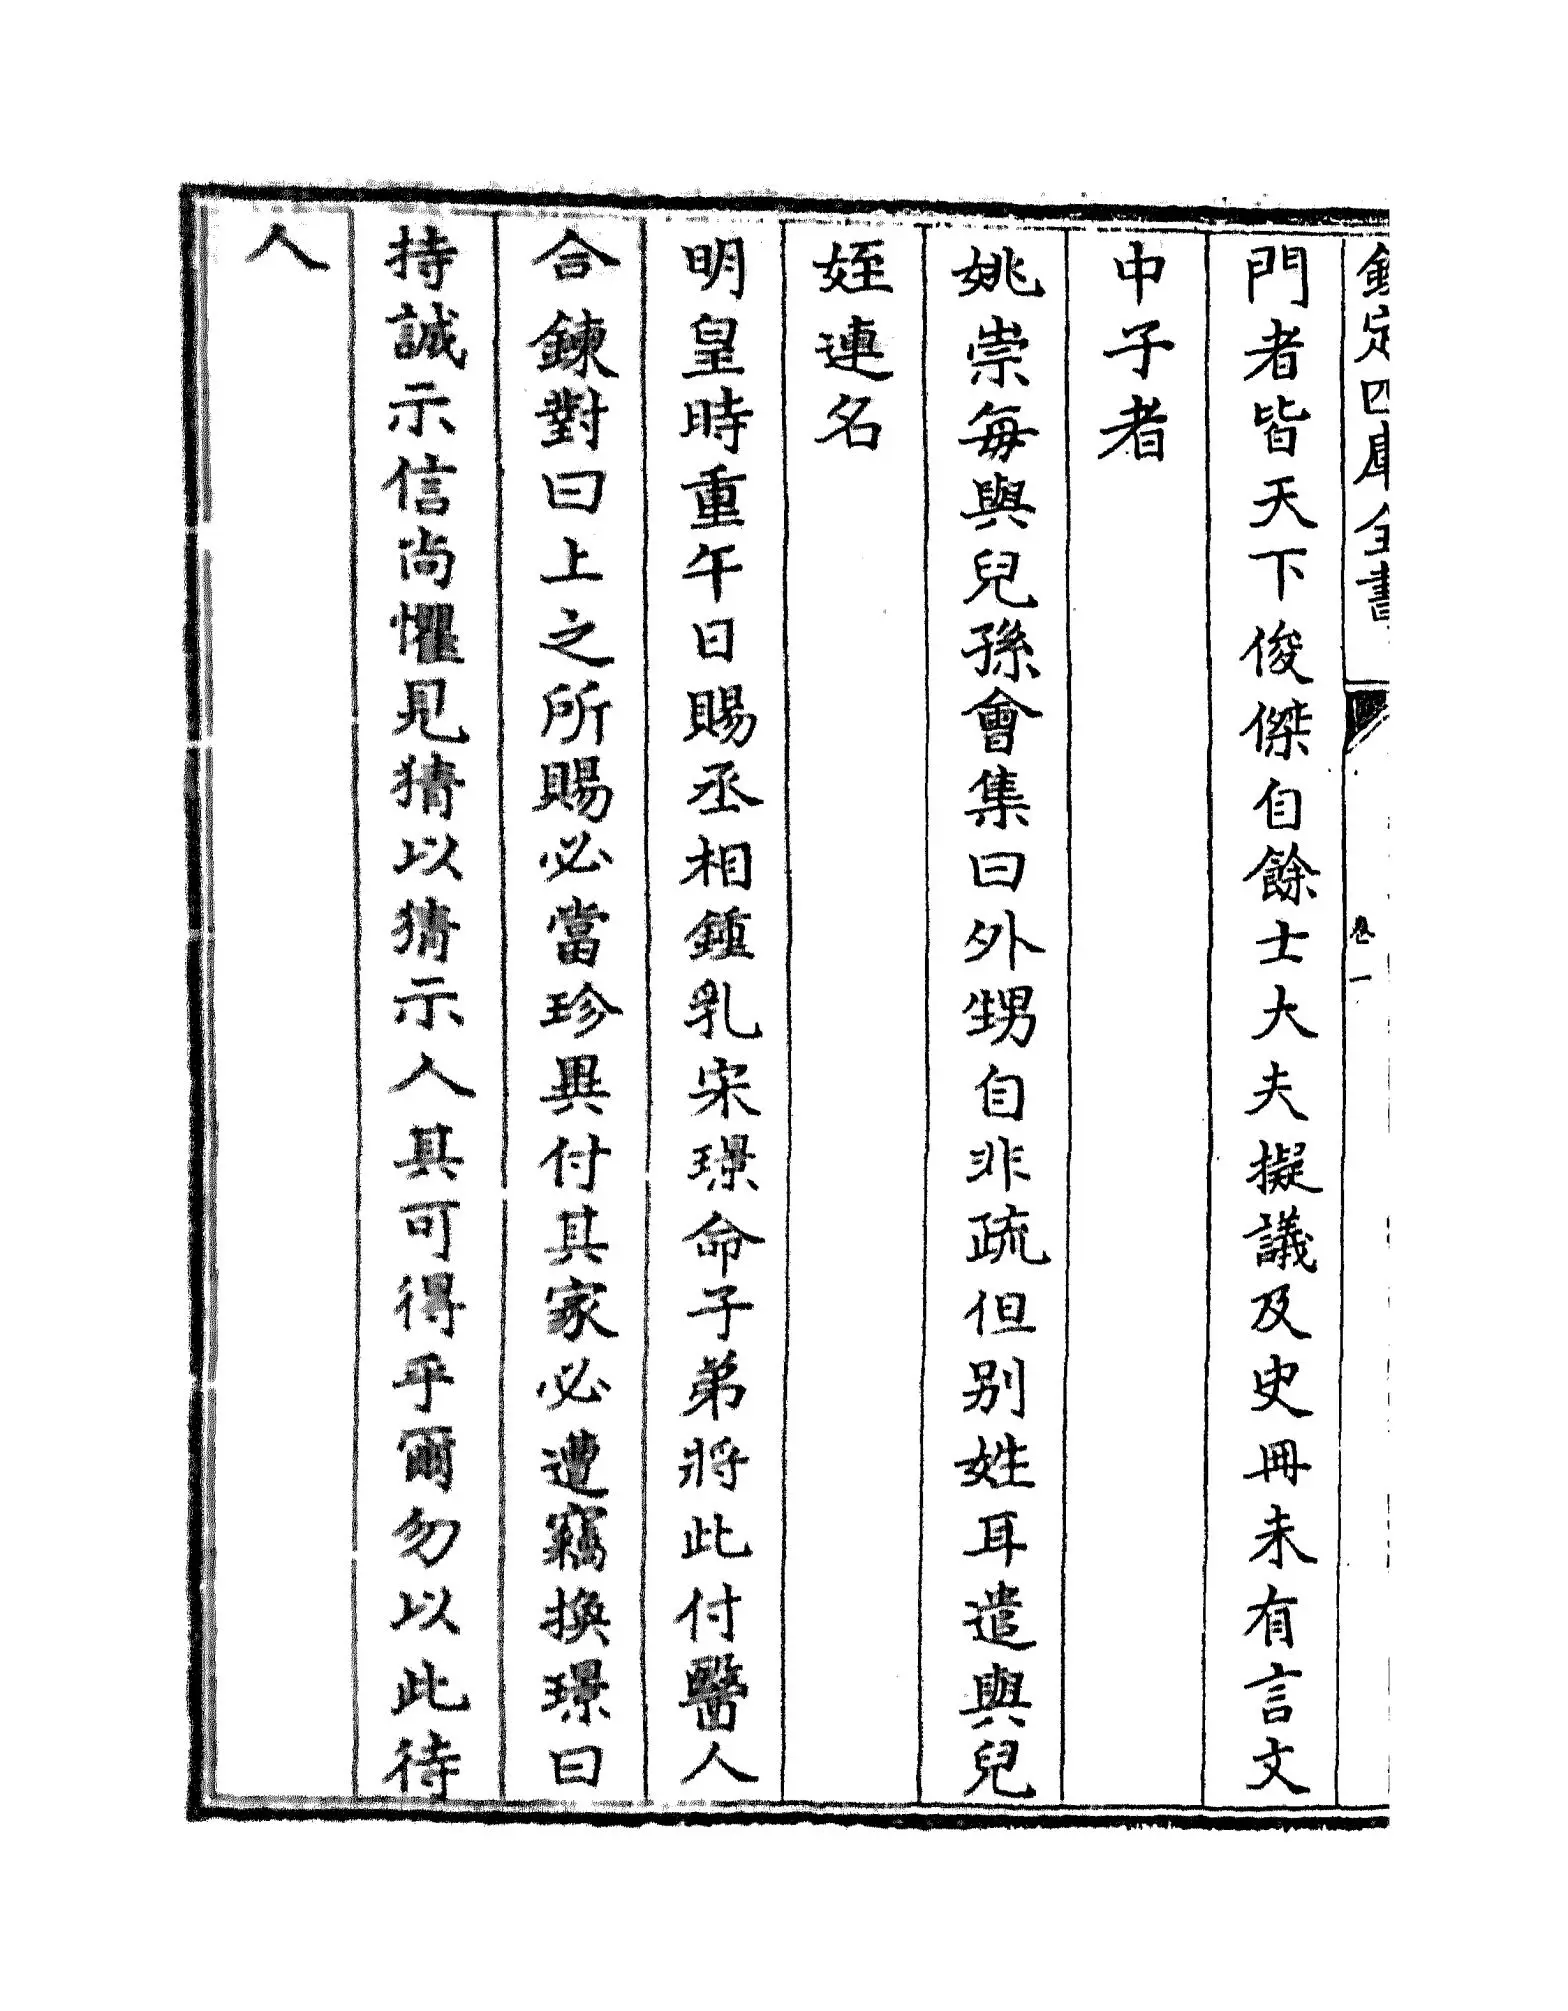 欽定四庫全書
卷一
門者皆天下俊傑自餘士大夫擬議及史冊未有言文
中子者
姚崇每與兒孫會集曰外甥自非疏但别姓耳遣與兒
姪連名
明皇時重午日賜丞相鍾乳宋璟命子弟將此付醫人
合鍊對曰上之所賜必當珍異付其家必遭竊換璟曰
持誠示信尚懼見猜以猜示人其可得乎爾勿以此待
人